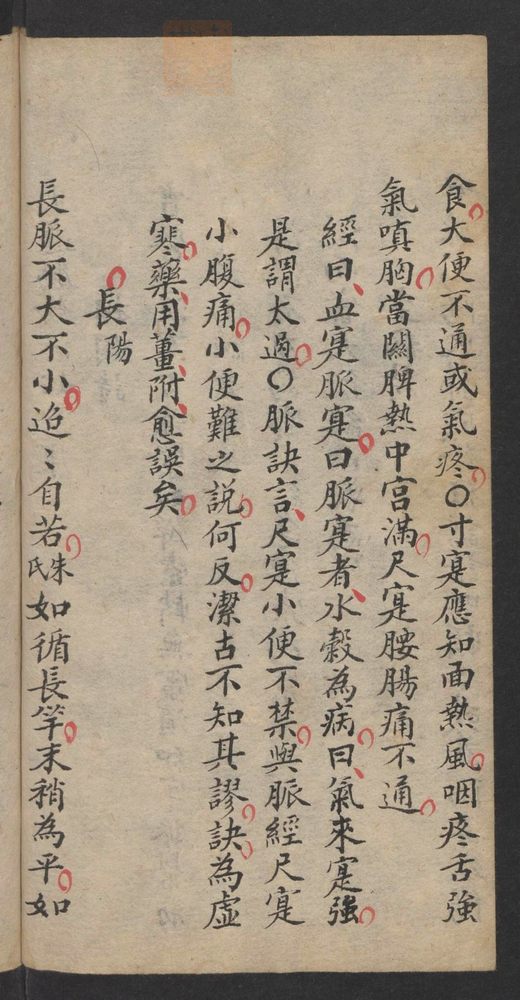 食大便不通或氣疼〇寸寔應知面熱風咽疼舌強
氣嗔胸當關脾熱中宮滿尺寔腰腸痛不通
經曰血寔脈寔曰脈寔者水穀為病曰氣來寔強
是謂太過〇脈訣言尺寔小便不禁與脈經尺寔
小腹痛小便難之説何反潔古不知其謬訣為虛
寒藥用薑附愈誤矣
長陽
長脈不大不小迢〻自若朱氏如循長竿末稍為平如